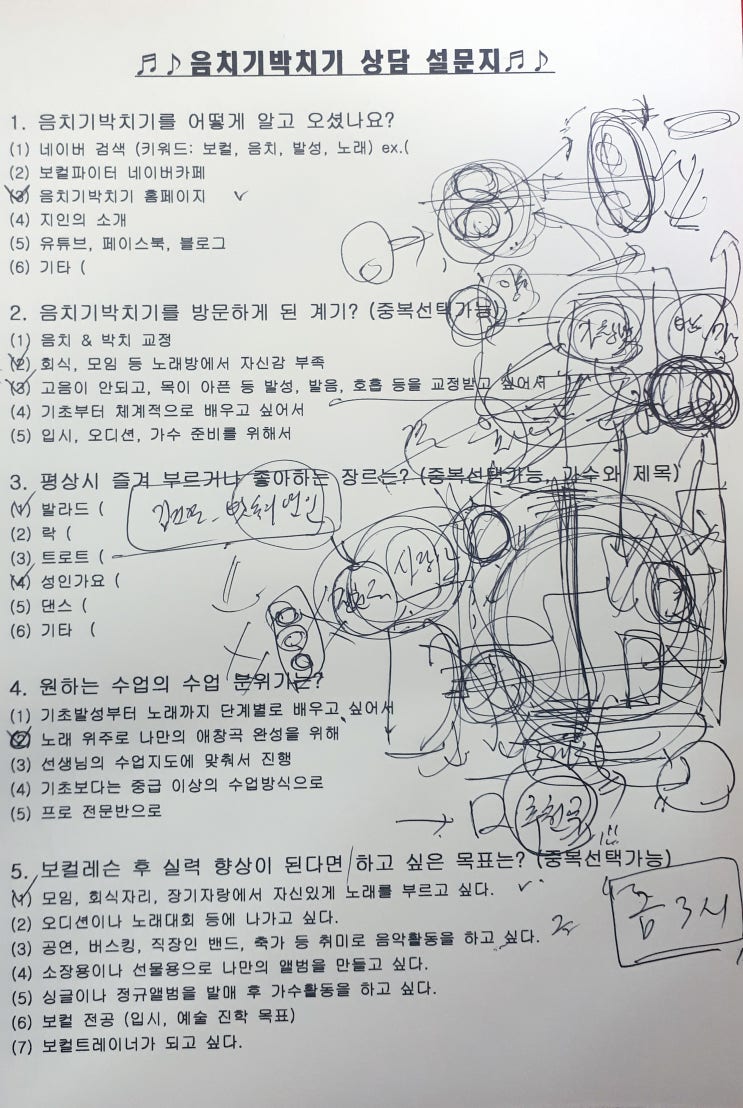 ♬♪음치기박치기 상담 설문지♬♪
1. 음치기박치기를 어떻게 알고 오셨나요?
(1) 네이버 검색 (키워드: 보컬, 음치, 발성, 노래) ex.(
(2) 보컬파이터 네이버카페
(3) 음치기박치기 홈페이지 ✓
(4) 지인의 소개
(5) 유튜브, 페이스북, 블로그
(6) 기타 (
2. 음치기박치기를 방문하게 된 계기? (중복선택가능)
(1) 음치 & 박치 교정
(2) 회식, 모임 등 노래방에서 자신감 부족
(3) 고음이 안되고, 목이 아픈 등 발성, 발음, 호흡 등을 교정받고 싶어서
(4) 기초부터 체계적으로 배우고 싶어서
(5) 입시, 오디션, 가수 준비를 위해서
3. 평상시 즐겨 부르거나 좋아하는 장르는? (중복선택가능, 가수와 제목)
(1) 발라드 (
(2) 락 (
(3) 트로트 (
(4) 성인가요 (
(5) 댄스 (
(6) 기타 (
4. 원하는 수업의 수업 분위기는?
(1) 기초발성부터 노래까지 단계별로 배우고 싶어서
(2) 노래 위주로 나만의 애창곡 완성을 위해
(3) 선생님의 수업지도에 맞춰서 진행
(4) 기초보다는 중급 이상의 수업방식으로
(5) 프로 전문반으로
추천곡
5. 보컬레슨 후 실력 향상이 된다면 하고 싶은 목표는? (중복선택가능)
(1) 모임, 회식자리, 장기자랑에서 자신있게 노래를 부르고 싶다. ✓
(2) 오디션이나 노래대회 등에 나가고 싶다.
(3) 공연, 버스킹, 직장인 밴드, 축가 등 취미로 음악활동을 하고 싶다.
(4) 소장용이나 선물용으로 나만의 앨범을 만들고 싶다.
(5) 싱글이나 정규앨범을 발매 후 가수활동을 하고 싶다.
(6) 보컬 전공 (입시, 예술 진학 목표)
(7) 보컬트레이너가 되고 싶다.
3시